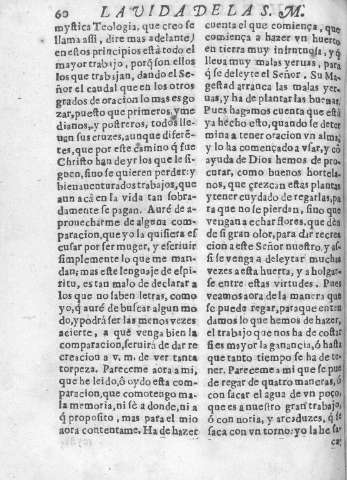 60 LA VIDA DE LA S. M.
mystica Teologia, que creo se
llama assi, dire mas adelante)
en estos principios està todo el
mayor trabajo, porq̃ son ellos
los que trabajan, dando el Se-
ñor el caudal que en los otros
grados de oracion lo mas es go-
zar, puesto que primeros, y me
dianos, y postreros, todos lle-
uan sus cruzes, aunque diferẽ-
tes, que por este camino q̃ fue
Christo han de yr los que le si-
guen, sino se quieren perder: y
bienauenturados trabajos, que
aun acà en la vida tan sobra-
damente se pagan. Aurè de a-
prouecharme de alguna com-
paracion, que yo la quisiera es-
cusar por ser muger, y escriuir
simplemente lo que me man-
dan; mas este lenguaje de espi-
ritu, es tan malo de declarar a
los que no saben letras, como
yo, q̃ aurè de buscar algun mo
do, y podrà ser las menos vezes
acierte, a què venga bien la
comparacion, seruirà de dar re
creacion a v. m. de ver tanta
torpeza. Pareceme aora a mi,
que he leido, ò oydo esta com-
paracion, que como tengo ma-
la memoria, ni sè a donde, ni a
q̃ proposito, mas para el mio
aora contentame. Ha de hazer
cuenta el que comiença, que
comiença a hazer vn huerto
en tierra muy infrutuosa, y q̃
lleua muy malas yeruas, para
q̃ se deleyte el Señor. Su Ma-
gestad arranca las malas yer-
uas, y ha de plantar las buenas.
Pues hagamos cuenta que està
ya hecho esto, quando se deter
mina a tener oracion vn alma,
y lo ha començado a vsar, y cõ
ayuda de Dios hemos de pro-
curar, como buenos hortela-
nos, que crezcan estas plantas
y tener cuydado de regarlas, pa
ra que no se pierdan, sino que
vengan a echar flores, que dèn
de si gran olor, para dar recrea
cion a este Señor nuestro, y as-
si se venga a deleytar muchas
vezes a esta huerta, y a holgar-
se entre estas virtudes. Pues
veamos aora de la manera que
se puede regar, para que enten
damos lo que hemos de hazer,
el trabajo que nos ha de costar
si es mayor la ganancia, ò hasta
que tanto tiempo se ha de te-
ner. Pareceme a mi que se pue
de regar de quatro maneras, ò
con sacar el agua de vn poço,
que es a nuestro gran trabajo,
ò con noria, y arcaduzes, q̃ se
saca con vn torno: yo la he sa-
ca-